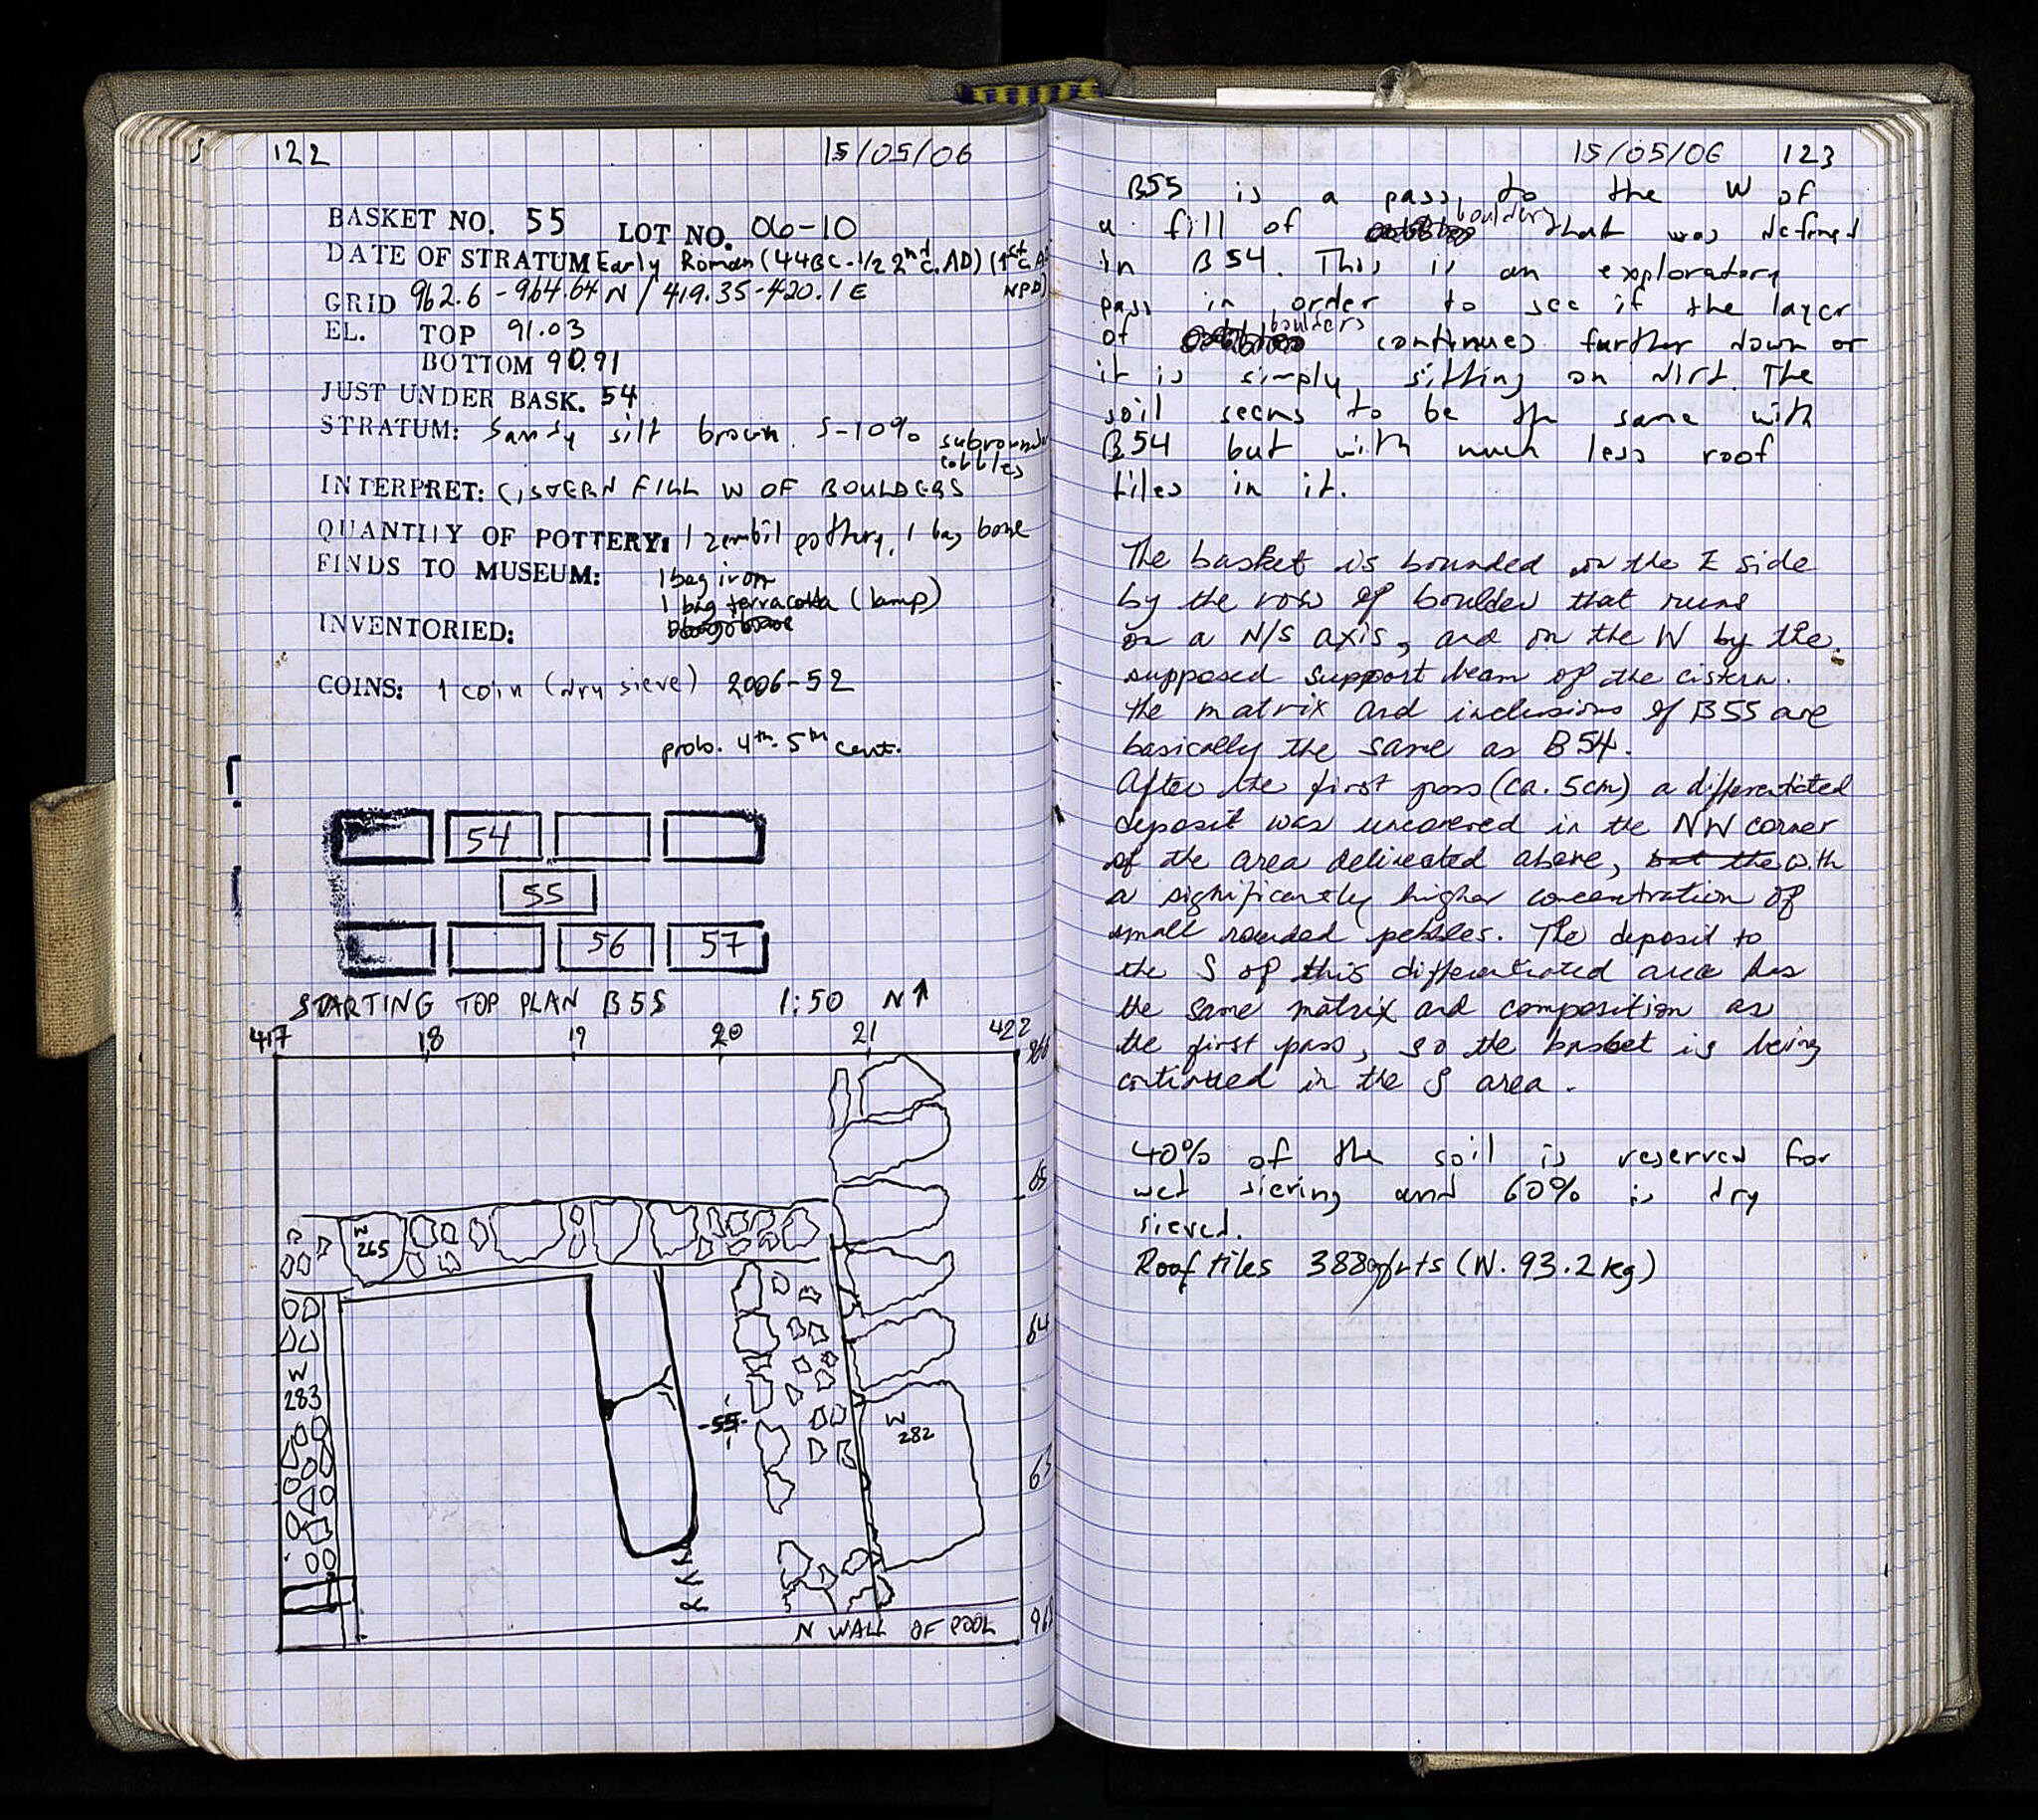 122 15/05/06
BASKET NO. 55 LOT NO. 06-10
DATE OF STRATUM Early Roman (44BC-1/2 2nd c. AD) (1st c. AD
NPD)
GRID 962.6-964.64 N / 419.35-420.1 E
EL. TOP 91.03
BOTTOM 90.91
JUST UNDER BASK. 54
STRATUM: Sandy silt brown. 5-10% subrounded
cobbles
INTERPRET: CISTERN FILL W OF BOULDERS
QUANTITY OF POTTERY: 1 zembil pottery, 1 bag bone
FINDS TO MUSEUM: 1 bag iron
1 bag terracotta (lamp)
INVENTORIED:
COINS: 1 coin (dry sieve) 2006-52
prob. 4th-5th cent.
54
55
56 57
STARTING TOP PLAN B55 1:50 N↑
417 18 19 20 21 422
966
65
W
265
64
W
283
-55-
W
282
63
N WALL OF POOL
962
15/05/06 123
B55 is a pass to the W of
a fill of boulders that was defined
in B54. This is an exploratory
pass in order to see if the layer
of boulders continues further down or
it is simply sitting on dirt. The
soil seems to be the same with
B54 but with much less roof
tiles in it.
The basket is bounded on the E side
by the row of boulder that runs
on a N/S axis, and on the W by the
supposed support beam of the cistern.
The matrix and inclusions of B55 are
basically the same as B54.
After the first pass (ca. 5cm) a differentiated
deposit was uncovered in the NW corner
of the area delineated above, but the with
a significantly higher concentration of
small rounded pebbles. The deposit to
the S of this differentiated area has
the same matrix and composition as
the first pass, so the basket is being
continued in the S area.
40% of the soil is reserved for
wet sieving and 60% is dry
sieved.
Roof tiles 388 (W. 93.2 kg)